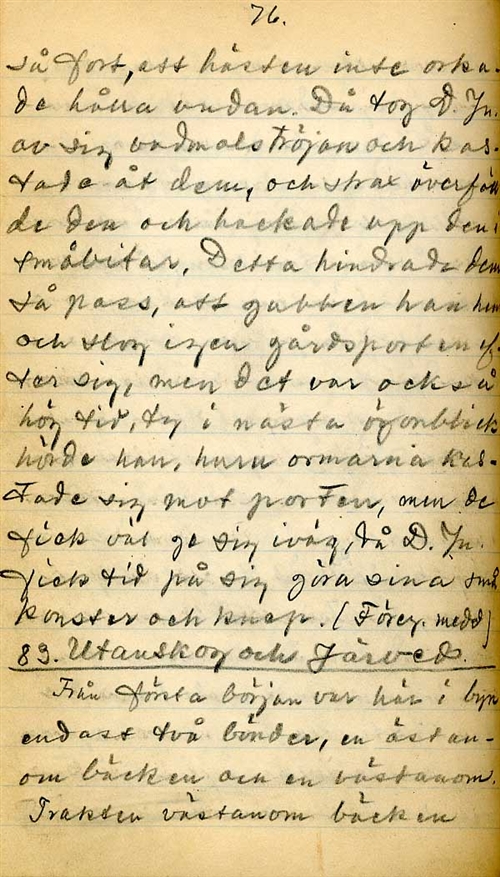 76.
så fort, att hästen inte orka-
de hålla undan. Då tog D. Jn.
av sig vadmalströjan och kas-
tade åt dem, och strax överföll
de den och hackade upp den i
småbitar. Detta hindrade dem
så pass, att gubben han hem
och slog igen gårdsporten ef-
ter sig, men det var också
hög tid, ty i nästa ögonblick
hörde han, huru ormarna kas-
tade sig mot porten, men de
fick väl ge sig iväg, då D. Jn.
fick tid på sig göra sina små
konster och knep. (Föreg. medd)
83. Utanskog och Järved.
Från första början var här i byn
endast två bönder, en östan-
om bäcken och en västanom.
Trakten västanom bäcken